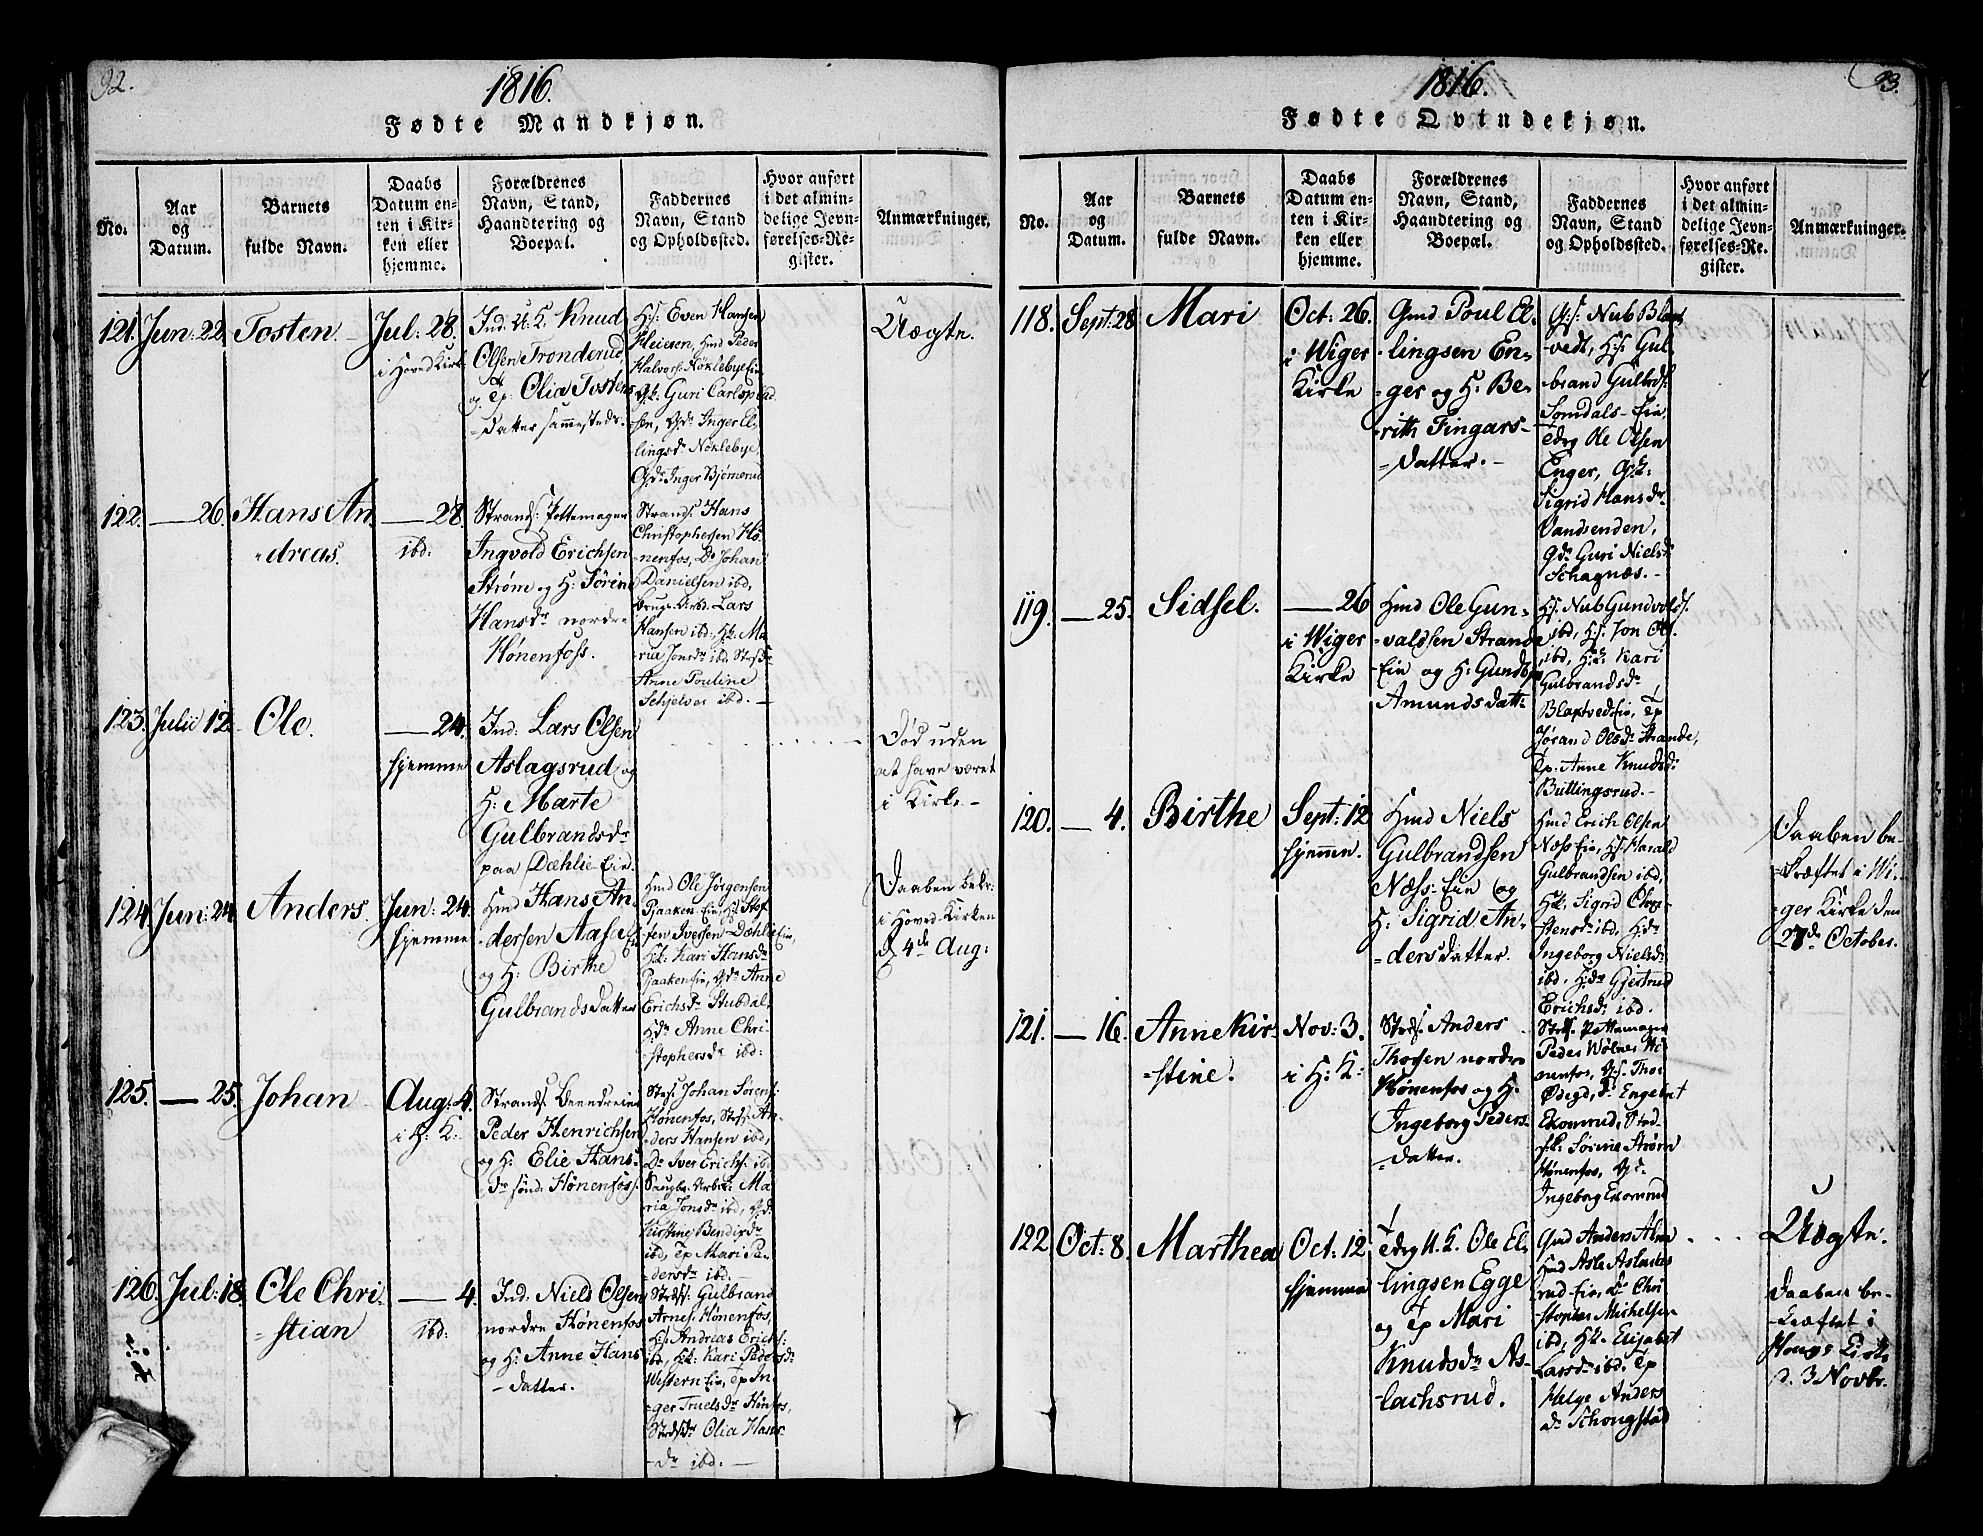 92.
1816.
Fødte Mandkjøn.
No.
Aar
og
Datum.
Barnets
fulde Navn.
Daabs
Datum en-
ten i Kir-
ken eller
hjemme.
Forældrenes
Navn, Stand,
Haandtering og
Boepæl.
Faddernes
Navn, Stand
og Opholdssted.
Hvor anført
i det almin-
delige Jevn-
førelses-Re-
gister.
Anmærkninger.
121. Jun: 22. Tosten. Jul: 28.
i Hoved Kirk
Ind: U. K. Knud
Olsen Tronderud
og Tp. Olia Tostens
Datter sammesteds.
H: Even Hansen
Heiesen, Hmd Peder
Halvors: Nøklebye Eie
Gk. Guri Carlsrud
Gdr Inger El-
lingsdr Nøklebye,
Gdr Inger Bjømerud
Uægte.
122. — 26. Hans An
dreas.
— 28.
ibd:
Strands: Pottemager
Ingvold Erichsen
Strøm og H: Sørine
Hansdr nordre
Hønenfoss.
Strands: Hans
Christophersen Hø-
nenfos, Do Johan
Danielsen ibd,
Brugs-Arbd. Lars
Hansen ibd: Hk: Ma
ria Jonsdr ibd Stdsdr
Anne Pouline
Schjelver ibd. —
123. Julii 12. Ole.
— 24.
hjemme
Ind: Lars Olsen
Aslagsrud og
H: Marte
Gulbrandsdr
paa Dæhlie Eie.
Død uden
at have været
i Kirke —
124. Jun: 24. Anders.
Jun: 24.
hjemme
Hmd Hans An-
dersen Aasa Ei
og H: Birthe
Gulbrands Datter
Hmd Ole Jørgensen
Pjaaken Eie, H: Stef
fen Iversen Dæhlie Eie,
Hk: Kari Hansdr
Pjaaken Eie, Gdr Anne
Erichsdr Stubdal
Hdr Anne Chri-
stophersdr ibd:
Daaben bekr:
i Hoved Kirken
d. 4de Aug:
125. — 25. Johan
Aug: 4.
i H: K:
Strands: Beendreier
Peder Henrichsen
og H: Elie Hans-
dr sønd: Hønenfoss.
Stds: Johan Sørens:
Hønenfos, Stds: An-
ders Hansen ibd,
Do Iver Erichs: ibd
Saugbr: Arbei: Ma
ria Jonsdr ibd, Gdr
Kirstine Bendixdr
ibd, Tp Mari Pe-
dersdr ibd. —
126. Jul: 18. Ole Chri-
stian
— 4.
ibd:
Ind: Niels Olsen
nordre Hønenfos
og H: Anne Hans
Datter.
Strds: Gulbrand
Arnes: Hønenfos,
H: Andreas Erichs:
ibd, Hk: Kari Pedersdr
Western Eie, Tp In-
ger Truelsdr Hønfos,
Stdsdr Olia Hans-
dr ibd: —
93.
1816.
Fødte Qvindekjøn.
No.
Aar
og
Datum.
Barnets
fulde Navn.
Daabs
Datum en-
ten i Kir-
ken eller
hjemme.
Forældrenes
Navn, Stand,
Haandtering og
Boepæl.
Faddernes
Navn, Stand
og Opholdssted.
Hvor anført
i det almin-
delige Jevn-
førelses-Re-
gister.
Anmærkninger.
118. Sept: 28 Mari
Oct: 26.
i Wiger
Kirke
Gmd Poul El-
lingsen En-
ger og H: Be-
rith Fingars-
Datter. —
G: Nub Blaxt
vedt, H: Gul-
brand Gulbrds:
Somdals-Eie,
Tdrg Ole Olsen
Enger, Gk:
Sigrid Hansdr
Vandsenden,
Gdr Guri Nielsdr
Schagnæs. —
119. — 25. Sidsel.
— 26
i Wiger
Kirke
Hmd Ole Gun-
valdsen Strande
Eie og H: Gunbjør
Amunds Datt:
H: Nub Gundvolds:
ibd, H: Jon Ols:
ibd, Hk: Kari
Gulbrandsdr
Blaxtved Eie, Tp
Jørand Olsdr Strande,
Tp: Anne Knudsdr
Buttingsrud. —
120. — 4. Birthe
Sept: 12
hjemme.
Hmd Niels
Gulbrandsen
Næss-Eie og
H: Sigrid An-
dersdatter.
Hmd Erich Olsen
Næss Eie, H: Harald
Gulbrandsen ibd,
Hk: Sigrid Chri-
stensdr ibd, Hdr
Ingeborg Nielsdr
ibd. Hdr Gjertrud
Erichsdr ibd.
Daaben be-
kræftet i Wi-
ger Kirke den
27de October.
121. — 16. Anne Kir-
stine.
Nov: 3.
i H: K:
Strds: Anders
Thorsen nordre
Hønenfos og H:
Ingeborg Peders-
Datter.
Strds: Pottemager
Peder Wølner Hø
nenfos, G: Thor
Ødegd, Do Engebret
Ekornrud, Strd-
fk: Sørine Strøm
Hønenfos, Gdr
Ingeborg Ekornrud
122 Oct: 8. Marthea
Oct: 12
hjemme
Tdrg U. K. Ole El-
lingsen Egge
og Tp Mari
Knudsdr As-
lachsrud.
Gmd Anders Alme
Hmd Asle Aslachs
rud-Eie, Do Chri
stopher Michelsen
ibd, Hk. Elisabet
Larsdr ibd: Tp
Helge Anders
dr Schougstad
Uægte.
Daaben be-
kræftet i
Hougs Kirke
d. 3 Novbr.